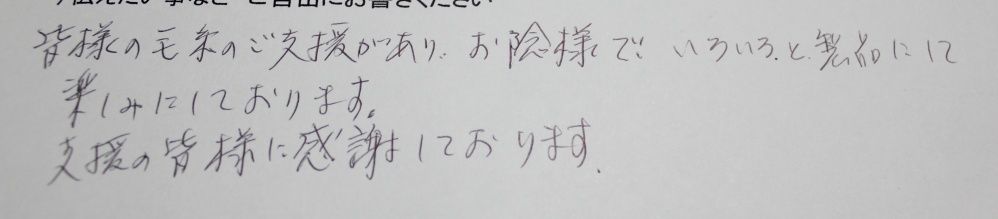 お伝えしたい事など ご自由にお書きください
皆様の毛糸のご支援があり、お陰様で、いろいろ、と、製品にして
楽しみにしております。
支援の皆様に感謝はしております、